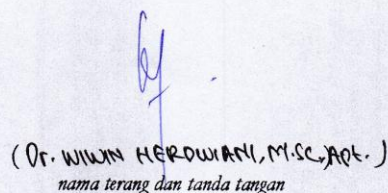 (Dr. WIWIN HERDWIANI, M.SC., Apt.)
nama terang dan tanda tangan